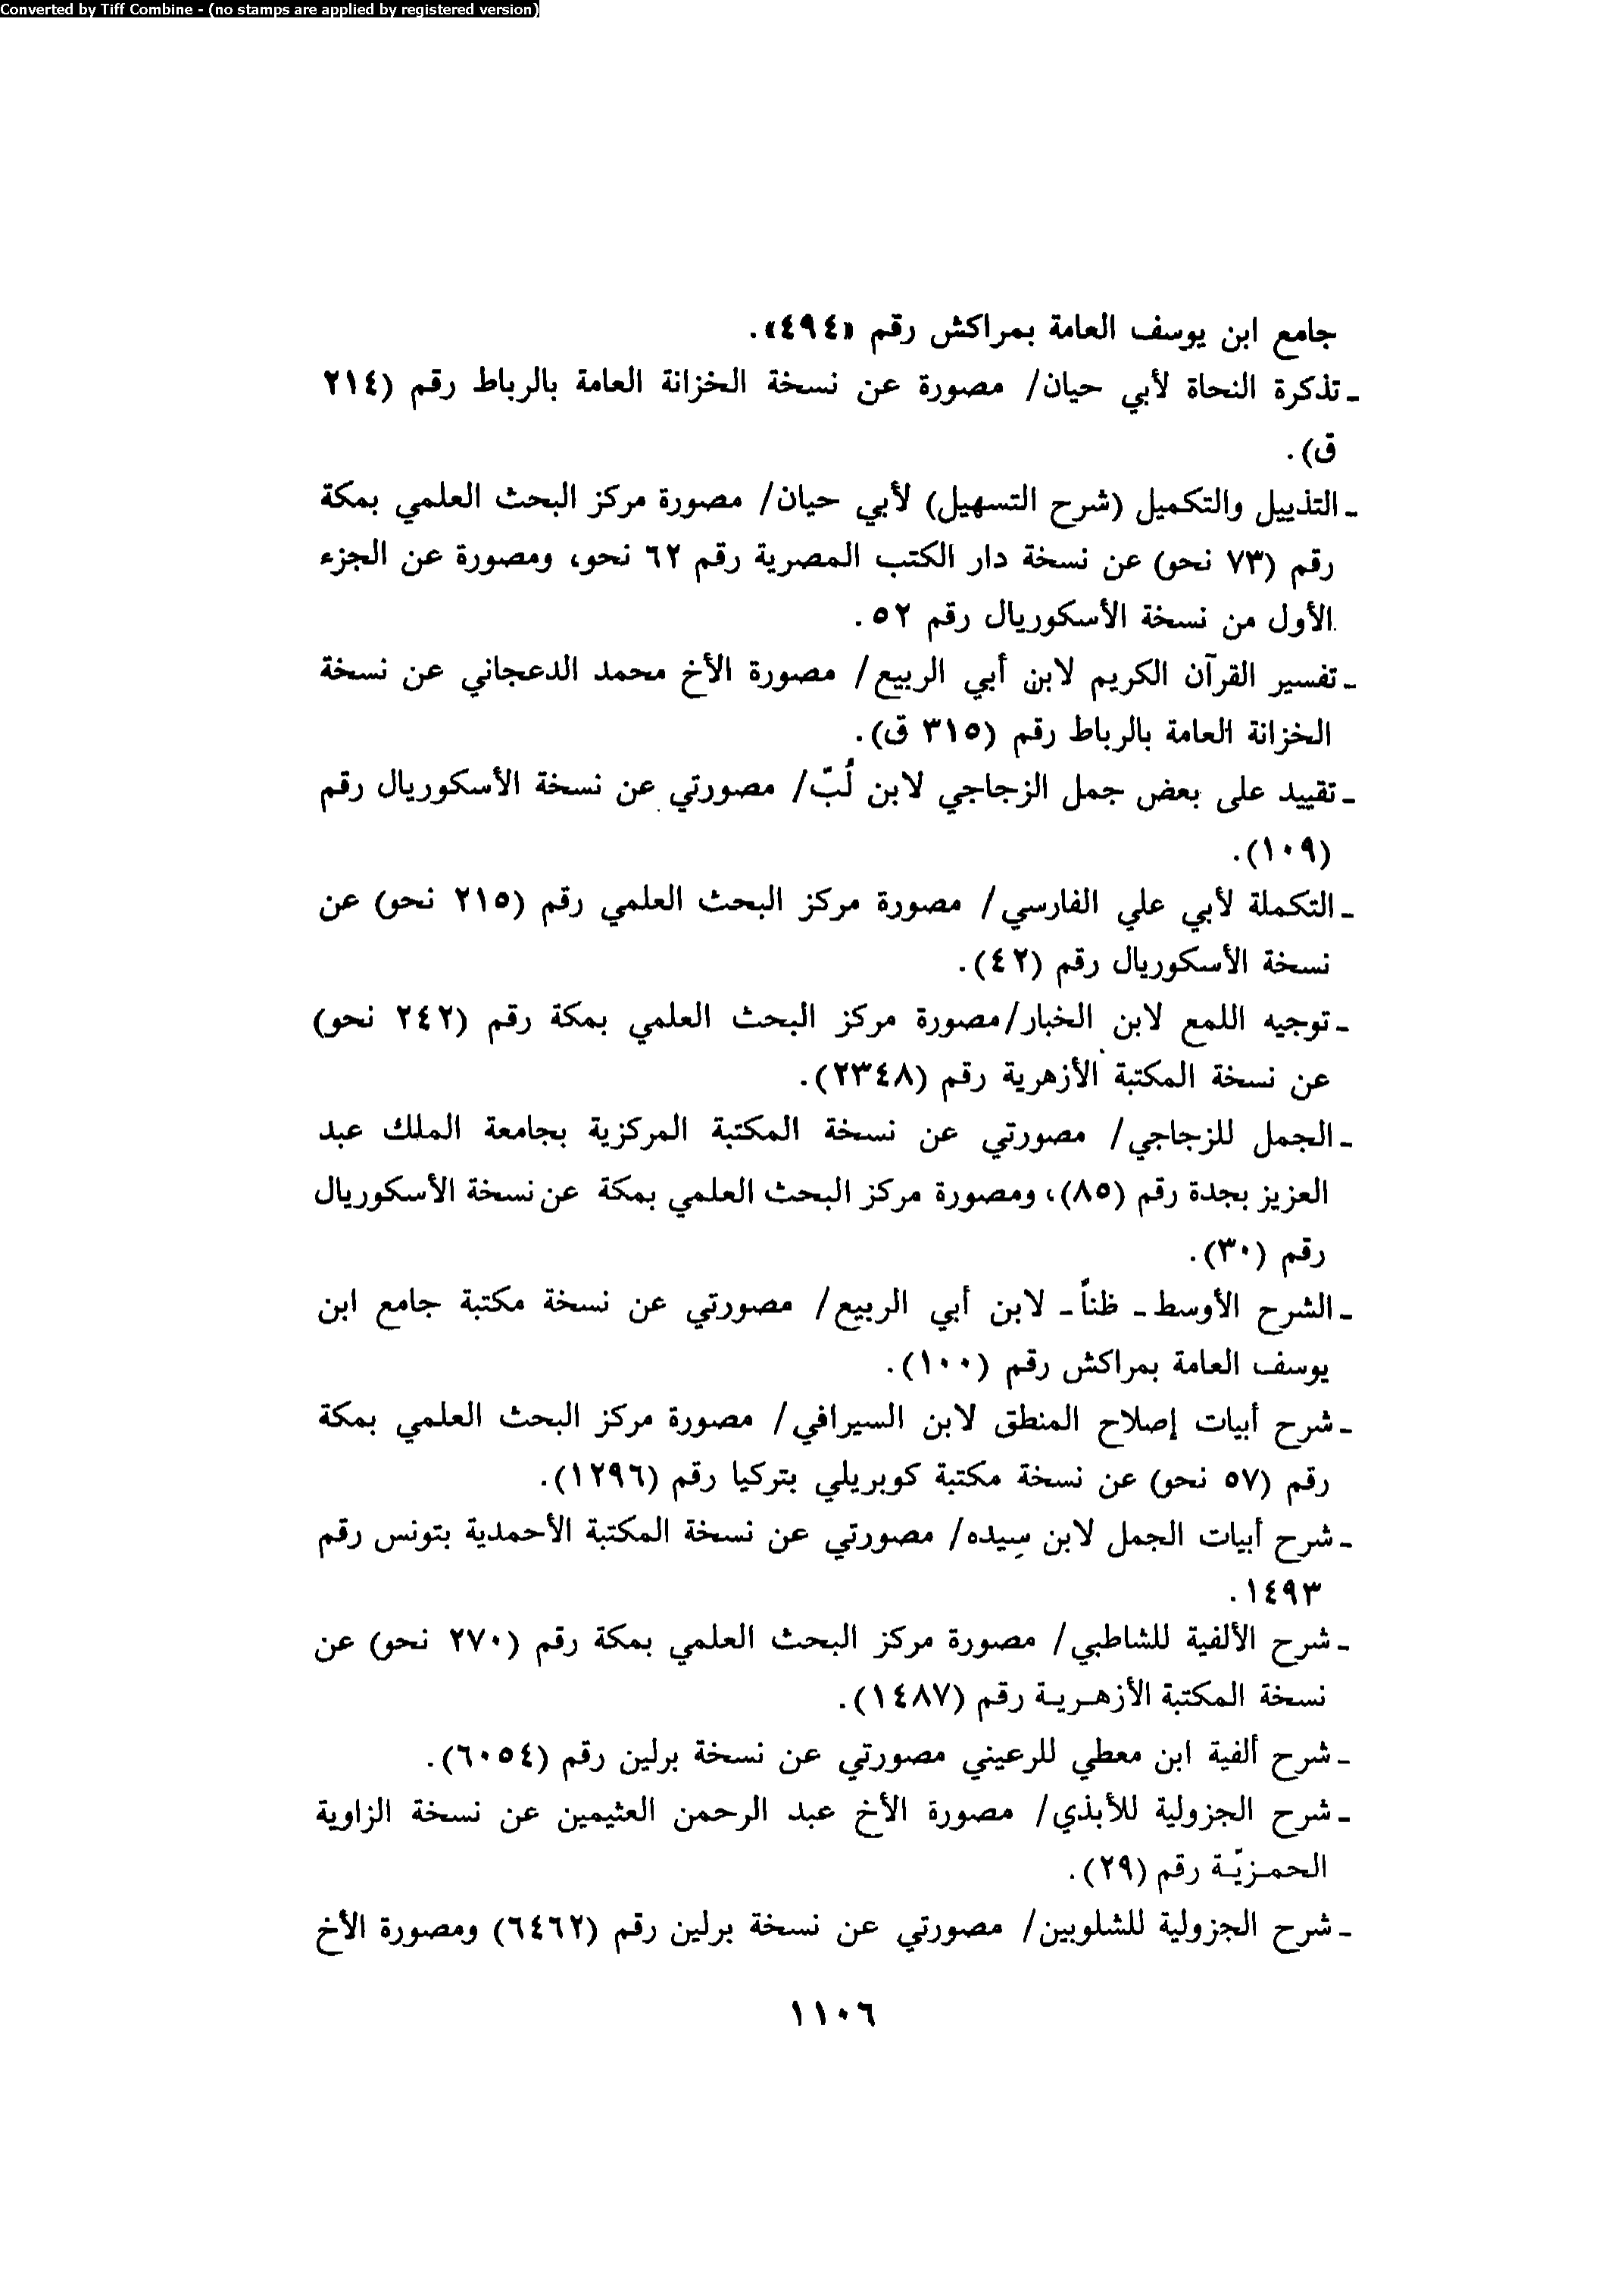 Converted by Tiff Combine - (no stamps are applied by registered version)
جامع ابن يوسف العامة بمراكش رقم «٤٩٤».
ـ تذكرة النحاة لأبي حيان/ مصورة عن نسخة الخزانة العامة بالرباط رقم (٢١٤
ق).
ـ التذييل والتكميل (شرح التسهيل) لأبي حيان/ مصورة مركز البحث العلمي بمكة
رقم (٧٣ نحو) عن نسخة دار الكتب المصرية رقم ٦٢ نحو، ومصورة عن الجزء
الأول من نسخة الأسكوريال رقم ٥٢.
ـ تفسير القرآن الكريم لابن أبي الربيع/ مصورة الأخ محمد الدعجاني عن نسخة
الخزانة العامة بالرباط رقم (٣١٥ ق).
ـ تقييد على بعض جمل الزجاجي لابن لُبّ/ مصورتي عن نسخة الأسكوريال رقم
(١٠٩).
ـ التكملة لأبي علي الفارسي/ مصورة مركز البحث العلمي رقم (٢١٥ نحو) عن
نسخة الأسكوريال رقم (٤٢).
ـ توجيه اللمع لابن الخبار/مصورة مركز البحث العلمي بمكة رقم (٢٤٢ نحو)
عن نسخة المكتبة الأزهرية رقم (٢٣٤٨).
ـ الجمل للزجاجي/ مصورتي عن نسخة المكتبة المركزية بجامعة الملك عبد
العزيز بجدة رقم (٨٥)، ومصورة مركز البحث العلمي بمكة عن نسخة الأسكوريال
رقم (٣٠).
ـ الشرح الأوسط ـ ظناً ـ لابن أبي الربيع/ مصورتي عن نسخة مكتبة جامع ابن
يوسف العامة بمراكش رقم (١٠٠).
ـ شرح أبيات إصلاح المنطق لابن السيرافي/ مصورة مركز البحث العلمي بمكة
رقم (٥٧ نحو) عن نسخة مكتبة كوبريلي بتركيا رقم (١٢٩٦).
ـ شرح أبيات الجمل لابن سِيده/ مصورتي عن نسخة المكتبة الأحمدية بتونس رقم
١٤٩٣.
ـ شرح الألفية للشاطبي/ مصورة مركز البحث العلمي بمكة رقم (٢٧٠ نحو) عن
نسخة المكتبة الأزهـريـة رقم (١٤٨٧).
ـ شرح ألفية ابن معطي للرعيني مصورتي عن نسخة برلين رقم (٦٠٥٤).
ـ شرح الجزولية للأبذي/ مصورة الأخ عبد الرحمن العثيمين عن نسخة الزاوية
الحمـزيّـة رقم (٢٩).
ـ شرح الجزولية للشلوبين/ مصورتي عن نسخة برلين رقم (٦٤٦٢) ومصورة الأخ
١١٠٦